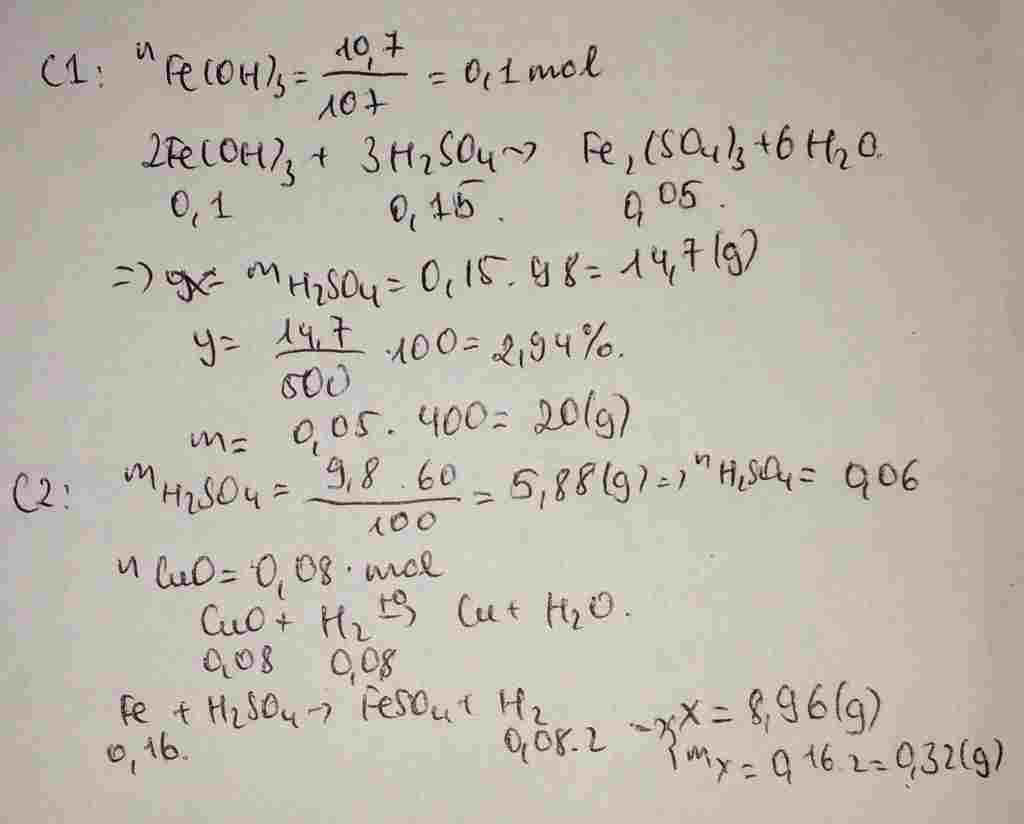 C1: nFe(OH)3 = 10,7/107 = 0,1 mol
2Fe(OH)3 + 3H2SO4 → Fe2(SO4)3 + 6H2O.
0,1 0,15. 0,05.
=) mH2SO4 = 0,15. 98 = 14,7(g)
y = 14,7/500 .100 = 2,94%.
m = 0,05. 400 = 20(g)
C2: mH2SO4 = 9,8 . 60/100 = 5,88(g) =) nH2SO4 = 0,06
nCuO = 0,08. mol
CuO + H2 t0→ Cu + H2O.
0,08 0,08
Fe + H2SO4 → FeSO4 + H2
0,16. 0,08.2
x = 8,96(g)
my = 0,16.2 = 0,32(g)